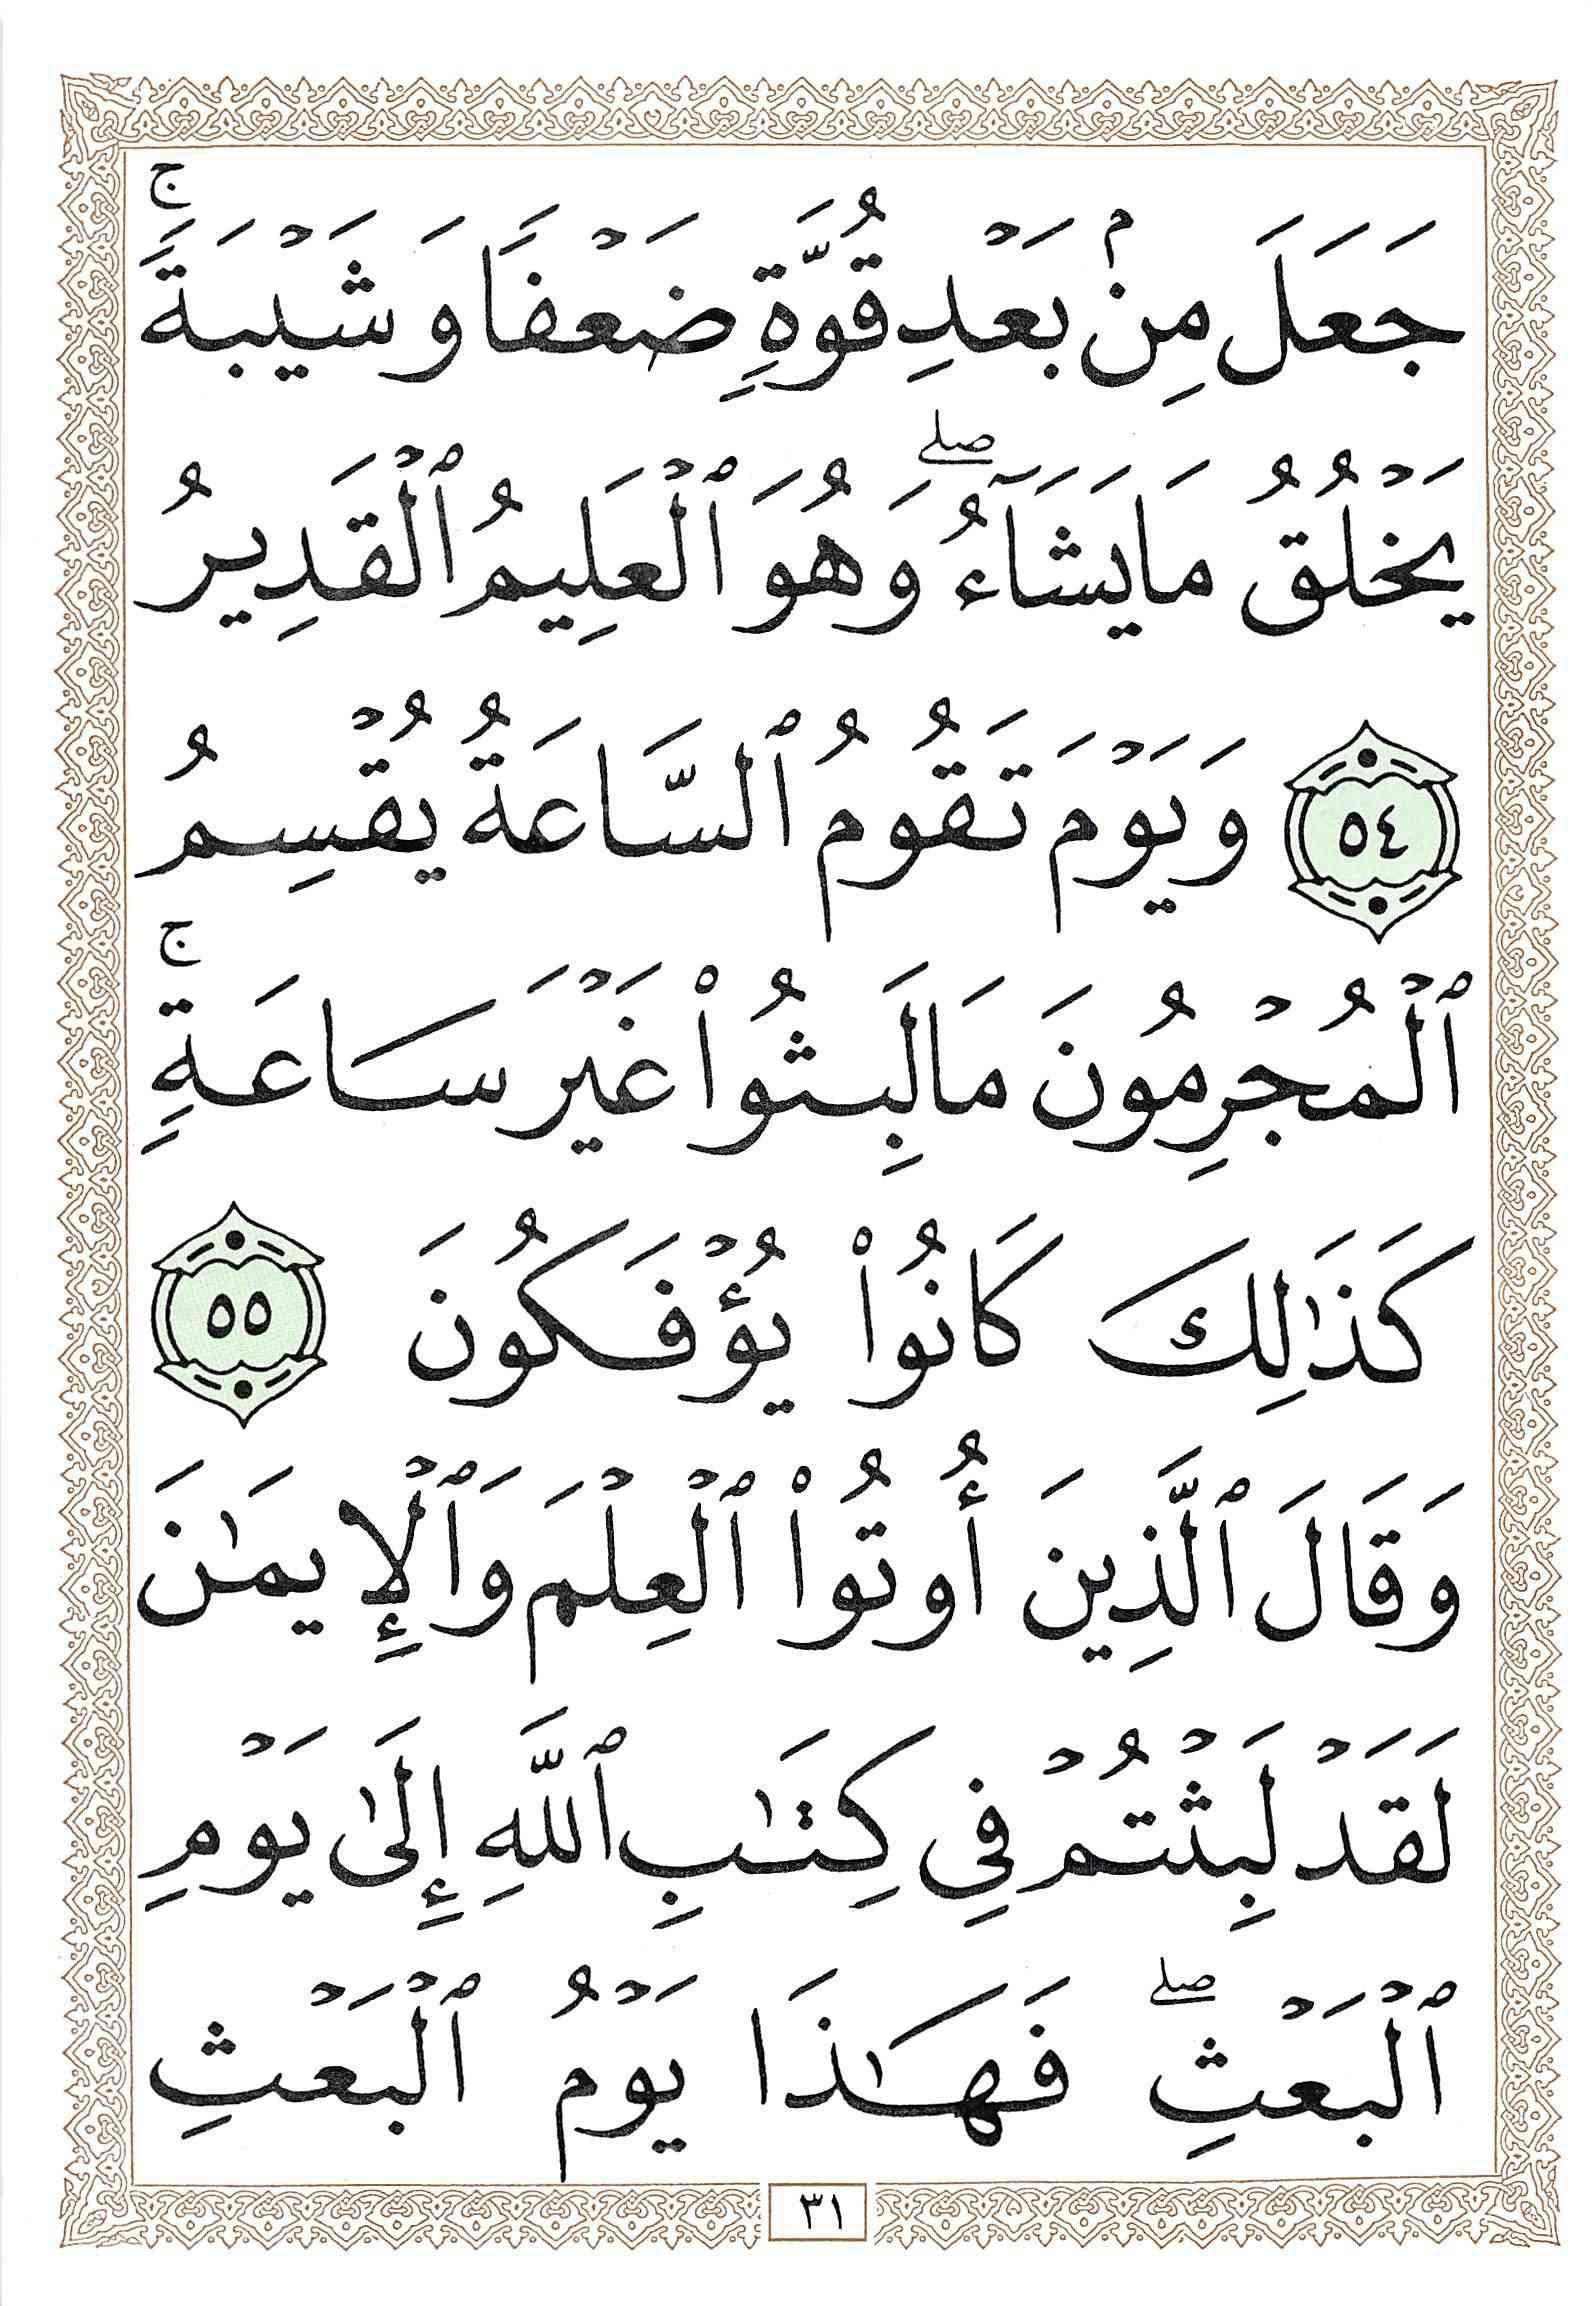 جَعَلَ مِنۢ بَعْدِ قُوَّةٍ ضَعْفًا وَشَيْبَةً ۚ
يَخْلُقُ مَا يَشَآءُ ۖ وَهُوَ ٱلْعَلِيمُ ٱلْقَدِيرُ
٥٤ وَيَوْمَ تَقُومُ ٱلسَّاعَةُ يُقْسِمُ
ٱلْمُجْرِمُونَ مَا لَبِثُوا۟ غَيْرَ سَاعَةٍ ۚ
كَذَٰلِكَ كَانُوا۟ يُؤْفَكُونَ ٥٥
وَقَالَ ٱلَّذِينَ أُوتُوا۟ ٱلْعِلْمَ وَٱلْإِيمَٰنَ
لَقَدْ لَبِثْتُمْ فِى كِتَٰبِ ٱللَّهِ إِلَىٰ يَوْمِ
ٱلْبَعْثِ ۖ فَهَٰذَا يَوْمُ ٱلْبَعْثِ
٣١